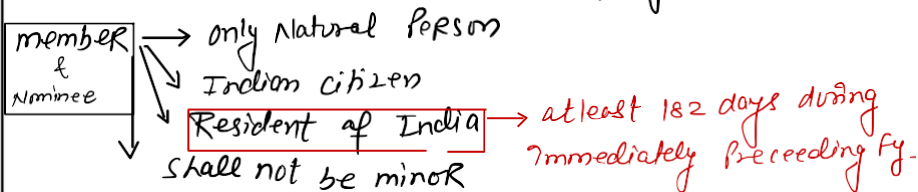 member → only Natural Person
&
Nominee
Indian citizen
Resident of India → atleast 182 days during
Immediately Preceeding Fy.
shall not be minor